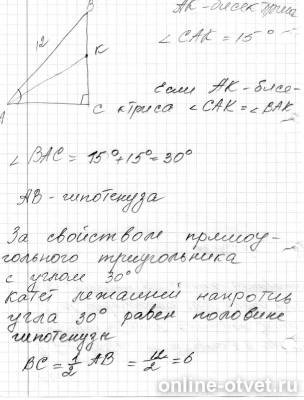 B
AK - бисектриса
∠CAK = 15°
12
K
A
C
Если AK - бисе-
ктриса ∠CAK = ∠BAK
∠BAC = 15° + 15° = 30°
AB - гипотенуза
За свойством прямоу-
гольного триугольника
с углом 30°
катет лежащий напротив
угла 30° равен половине
гипотенузы
BC = 1/2 AB = 12/2 = 6
online-otvet.ru